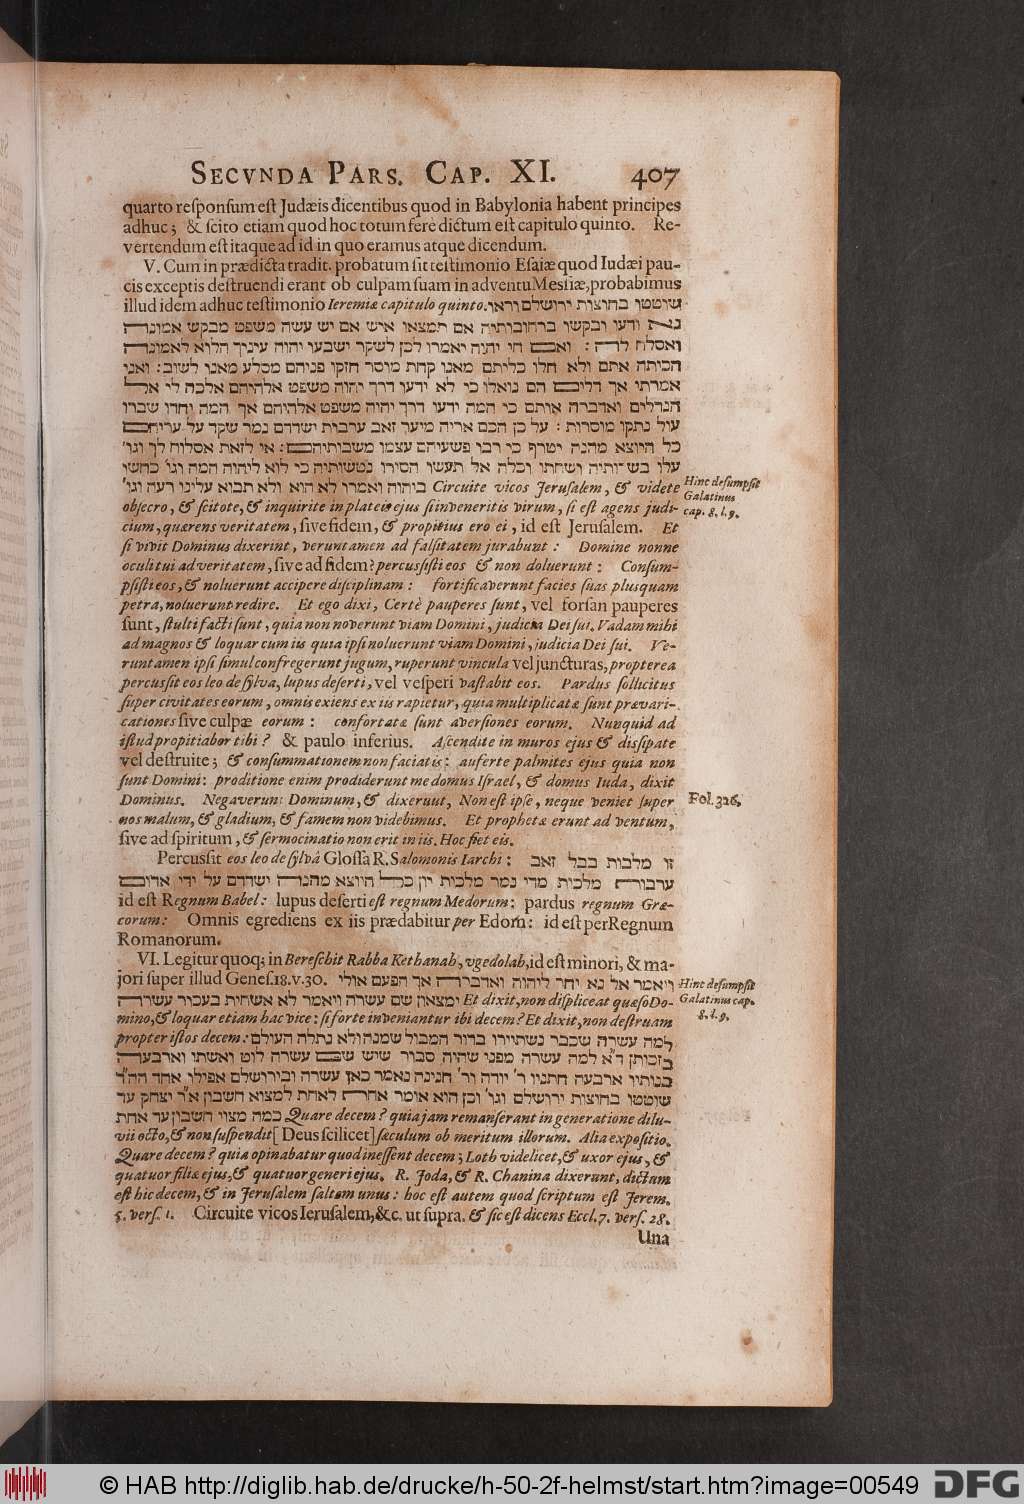 SECVNDA PARS. CAP. XI. 407
quarto responsum est Judæis dicentibus quod in Babylonia habent principes
adhuc; & scito etiam quod hoc totum ferè dictum est capitulo quinto. Re-
vertendum est itaque ad id in quo eramus atque dicendum.
V. Cum in prædicta tradit. probatum sit testimonio Esaiæ quod Iudæi pau-
cis exceptis destruendi erant ob culpam suam in adventu Messiæ, probabimus
illud idem adhuc testimonio Ieremiæ capitulo quinto. שוטטו בחוצות ירושלם וראו
נא ודעו ובקשו ברחובותיה אם תמצאו איש אם יש עשה משפט מבקש אמונה
ואסלח לה : ואם חי יהוה יאמרו לכן לשקר ישבעו יהוה עיניך הלוא לאמונה
הכיתה אתם ולא חלו כליתם מאנו קחת מוסר חזקו פניהם מסלע מאנו לשוב : ואני
אמרתי אך דלים הם נואלו כי לא ידעו דרך יהוה משפט אלהיהם אלכה לי אל
הגדלים ואדברה אותם כי המה ידעו דרך יהוה משפט אלהיהם אך המה יחדו שברו
עול נתקו מוסרות : על כן הכם אריה מיער זאב ערבות ישדדם נמר שקד על עריהם
כל היוצא מהנה יטרף כי רבו פשעיהם עצמו משבותיהם : אי לזאת אסלוח לך וגו׳
עלו בשרותיה ושחתו וכלה אל תעשו הסירו נטשותיה כי לוא ליהוה המה וגו׳ כחשו
ביהוה ואמרו לא הוא ולא תבוא עלינו רעה וגו׳ Circuite vicos Jerusalem, & videte
obsecro, & scitote, & inquirite in plateis ejus si inveneritis virum, si est agens judi-
cium, quærens veritatem, sive fidem, & propitius ero ei, id est Jerusalem. Et
si vivit Dominus dixerint, veruntamen ad falsitatem jurabunt: Domine nonne
oculi tui ad veritatem, sive ad fidem? percussisti eos & non doluerunt: Consum-
psisti eos, & noluerunt accipere disciplinam: fortificaverunt facies suas plusquam
petra, noluerunt redire. Et ego dixi, Certè pauperes sunt, vel forsan pauperes
sunt, stulti facti sunt, quia non noverunt viam Domini, judicia Dei sui. Vadam mihi
ad magnos & loquar cum iis quia ipsi noluerunt viam Domini, judicia Dei sui. Ve-
runtamen ipsi simul confregerunt jugum, ruperunt vincula vel juncturas, propterea
percussit eos leo de sylva, lupus deserti, vel vesperi vastabit eos. Pardus sollicitus
super civitates eorum, omnis exiens ex iis rapietur, quia multiplicatæ sunt prævari-
cationes sive culpæ eorum: confortatæ sunt aversiones eorum. Nunquid ad
istud propitiabor tibi? & paulo inferius. Ascendite in muros ejus & dissipate
vel destruite; & consummationem non faciatis: auferte palmites ejus quia non
sunt Domini: proditione enim prodiderunt me domus Israel, & domus Iuda, dixit
Dominus. Negaverunt Dominum, & dixerunt, Non est ipse, neque veniet super
nos malum, & gladium, & famem non videbimus. Et prophetæ erunt ad ventum,
sive ad spiritum, & sermocinatio non erit in iis. Hoc fiet eis.
Percussit eos leo de sylvâ Glossa R. Salomonis Iarchi: זו מלכות בבל זאב
ערבות מלכות מדי נמר מלכות יון כל היוצא מהנה ישדדם על ידי אדום
id est Regnum Babel: lupus deserti est regnum Medorum: pardus regnum Græ-
corum: Omnis egrediens ex iis prædabitur per Edom: id est per Regnum
Romanorum.
VI. Legitur quoq; in Bereschit Rabba Kethanah, vgedolah, id est minori, & ma-
jori super illud Genes. 18. v. 30. ויאמר אל נא יחר ליהוה ואדברה אך הפעם אולי
ימצאון שם עשרה ויאמר לא אשחית בעבור עשרה Et dixit, non displiceat quæso Do-
mino, & loquar etiam hac vice: si forte inveniantur ibi decem? Et dixit, non destruam
propter istos decem: למה עשרה שכבר נשתיירו בדור המבול שמנה ולא נתלה העולם
בזכותן ד״א למה עשרה מפני שהיה סבור שיש שם עשרה לוט ואשתו וארבעה
בנותיו ארבעה חתניו ר׳ יודה ור׳ חנינה נאמר כאן עשרה ובירושלם אפילו אחד הה״ד
שוטטו בחוצות ירושלם וגו׳ וכן הוא אומר אחת לאחת למצוא חשבון א״ר יצחק עד
כמה מצוי חשבון עד אחת Quare decem? quia jam remanserant in generatione dilu-
vii octo, & non suspendit [Deus scilicet] sæculum ob meritum illorum. Alia expositio.
Quare decem? quia opinabatur quod inessent decem; Loth videlicet, & uxor ejus, &
quatuor filiæ ejus, & quatuor generi ejus. R. Joda, & R. Chanina dixerunt, dictum
est hic decem, & in Jerusalem saltem unus: hoc est autem quod scriptum est Jerem.
5. vers. 1. Circuite vicos Ierusalem, &c. ut supra. & sic est dicens Eccl. 7. vers. 28.
Una
Hinc desumpsit
Galatinus
cap. 8. l. 9.
Fol. 326.
Hinc desumpsit
Galatinus cap.
8. l. 9.
© HAB http://diglib.hab.de/drucke/h-50-2f-helmst/start.htm?image=00549 DFG